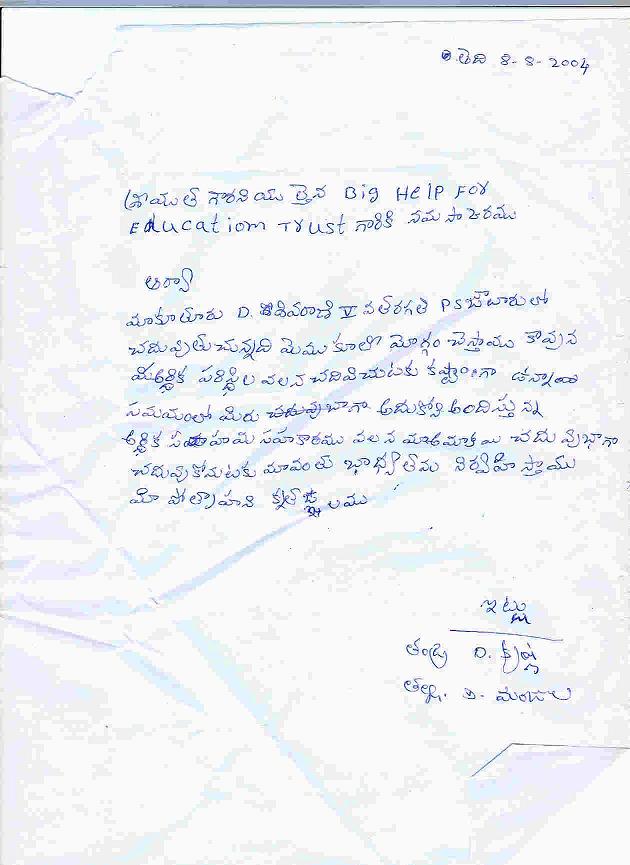 తేది 8-8-2004
శ్రీయుత గౌరనియులైన Big Help For
Education Trust గారికి నమస్కారము
ఆర్యా
మాకూతూరు D. శివరాణి V వతరగతి PS లో
చదువుతుచున్నది మెము కూలి మొగ్గం చేస్తాము కావున
ఆర్థిక పరిస్థితిల వలన చదివించుటకు కష్టాంగా ఉన్నా
సమయంలో మిరు చదువుబాగా ఆదుకోని అందిస్తున్న
ఆర్థిక సహయ సహకారము వలన మా చదువుబాగా
చదువుకోనుటకు మావంతు భాద్యతను నిర్వహిస్తాము
మీ కృతజ్ఞులము
ఇట్లు
తండ్రి D. కృష్ణ
తల్లి. D. మంజుల